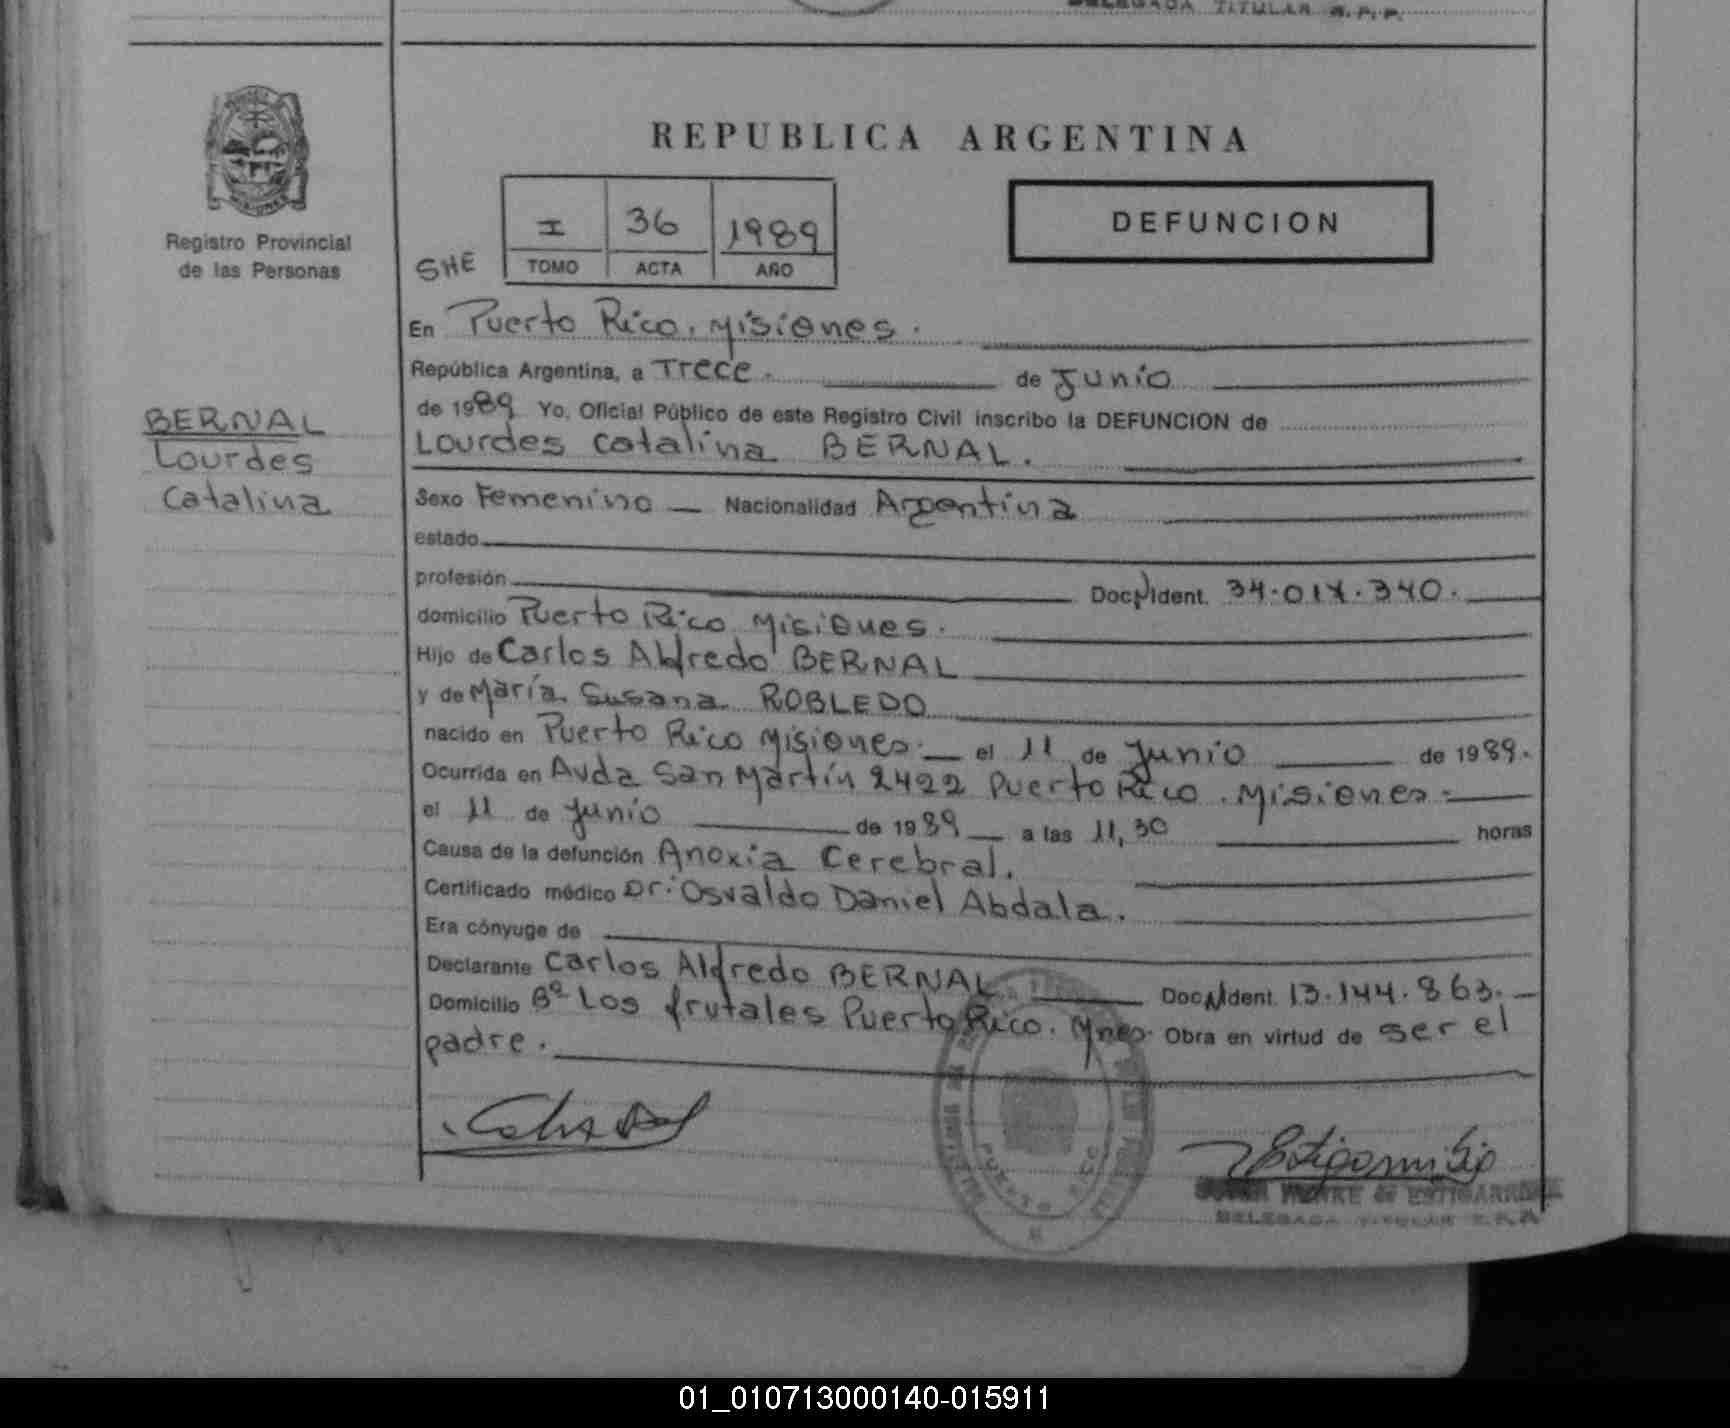 DELEGADA TITULAR R.P.P.
REPUBLICA ARGENTINA
Registro Provincial
de las Personas
SHE
I 36 1989
TOMO ACTA AÑO
DEFUNCION
En Puerto Rico. Misiones.
República Argentina, a Trece. de Junio
de 1989 Yo, Oficial Público de este Registro Civil inscribo la DEFUNCION de
Lourdes Catalina BERNAL.
BERNAL
Lourdes
Catalina
Sexo Femenino Nacionalidad Argentina
estado
profesión Doc. Ident. 34.017.340.
domicilio Puerto Rico Misiones.
Hijo de Carlos Alfredo BERNAL
y de María Susana ROBLEDO
nacido en Puerto Rico Misiones. el 11 de Junio de 1989.
Ocurrida en Avda San Martín 2422 Puerto Rico. Misiones.
el 11 de Junio de 1989 a las 11,30 horas
Causa de la defunción Anoxia Cerebral.
Certificado médico Dr. Osvaldo Daniel Abdala.
Era cónyuge de
Declarante Carlos Alfredo BERNAL Doc. Ident. 13.144.863.
Domicilio Bº Los frutales Puerto Rico. Mnes. Obra en virtud de ser el
padre.
PUERTO RICO
DE ESTIGARRIBIA
DELEGADA TITULAR R.P.P.
01_010713000140-015911